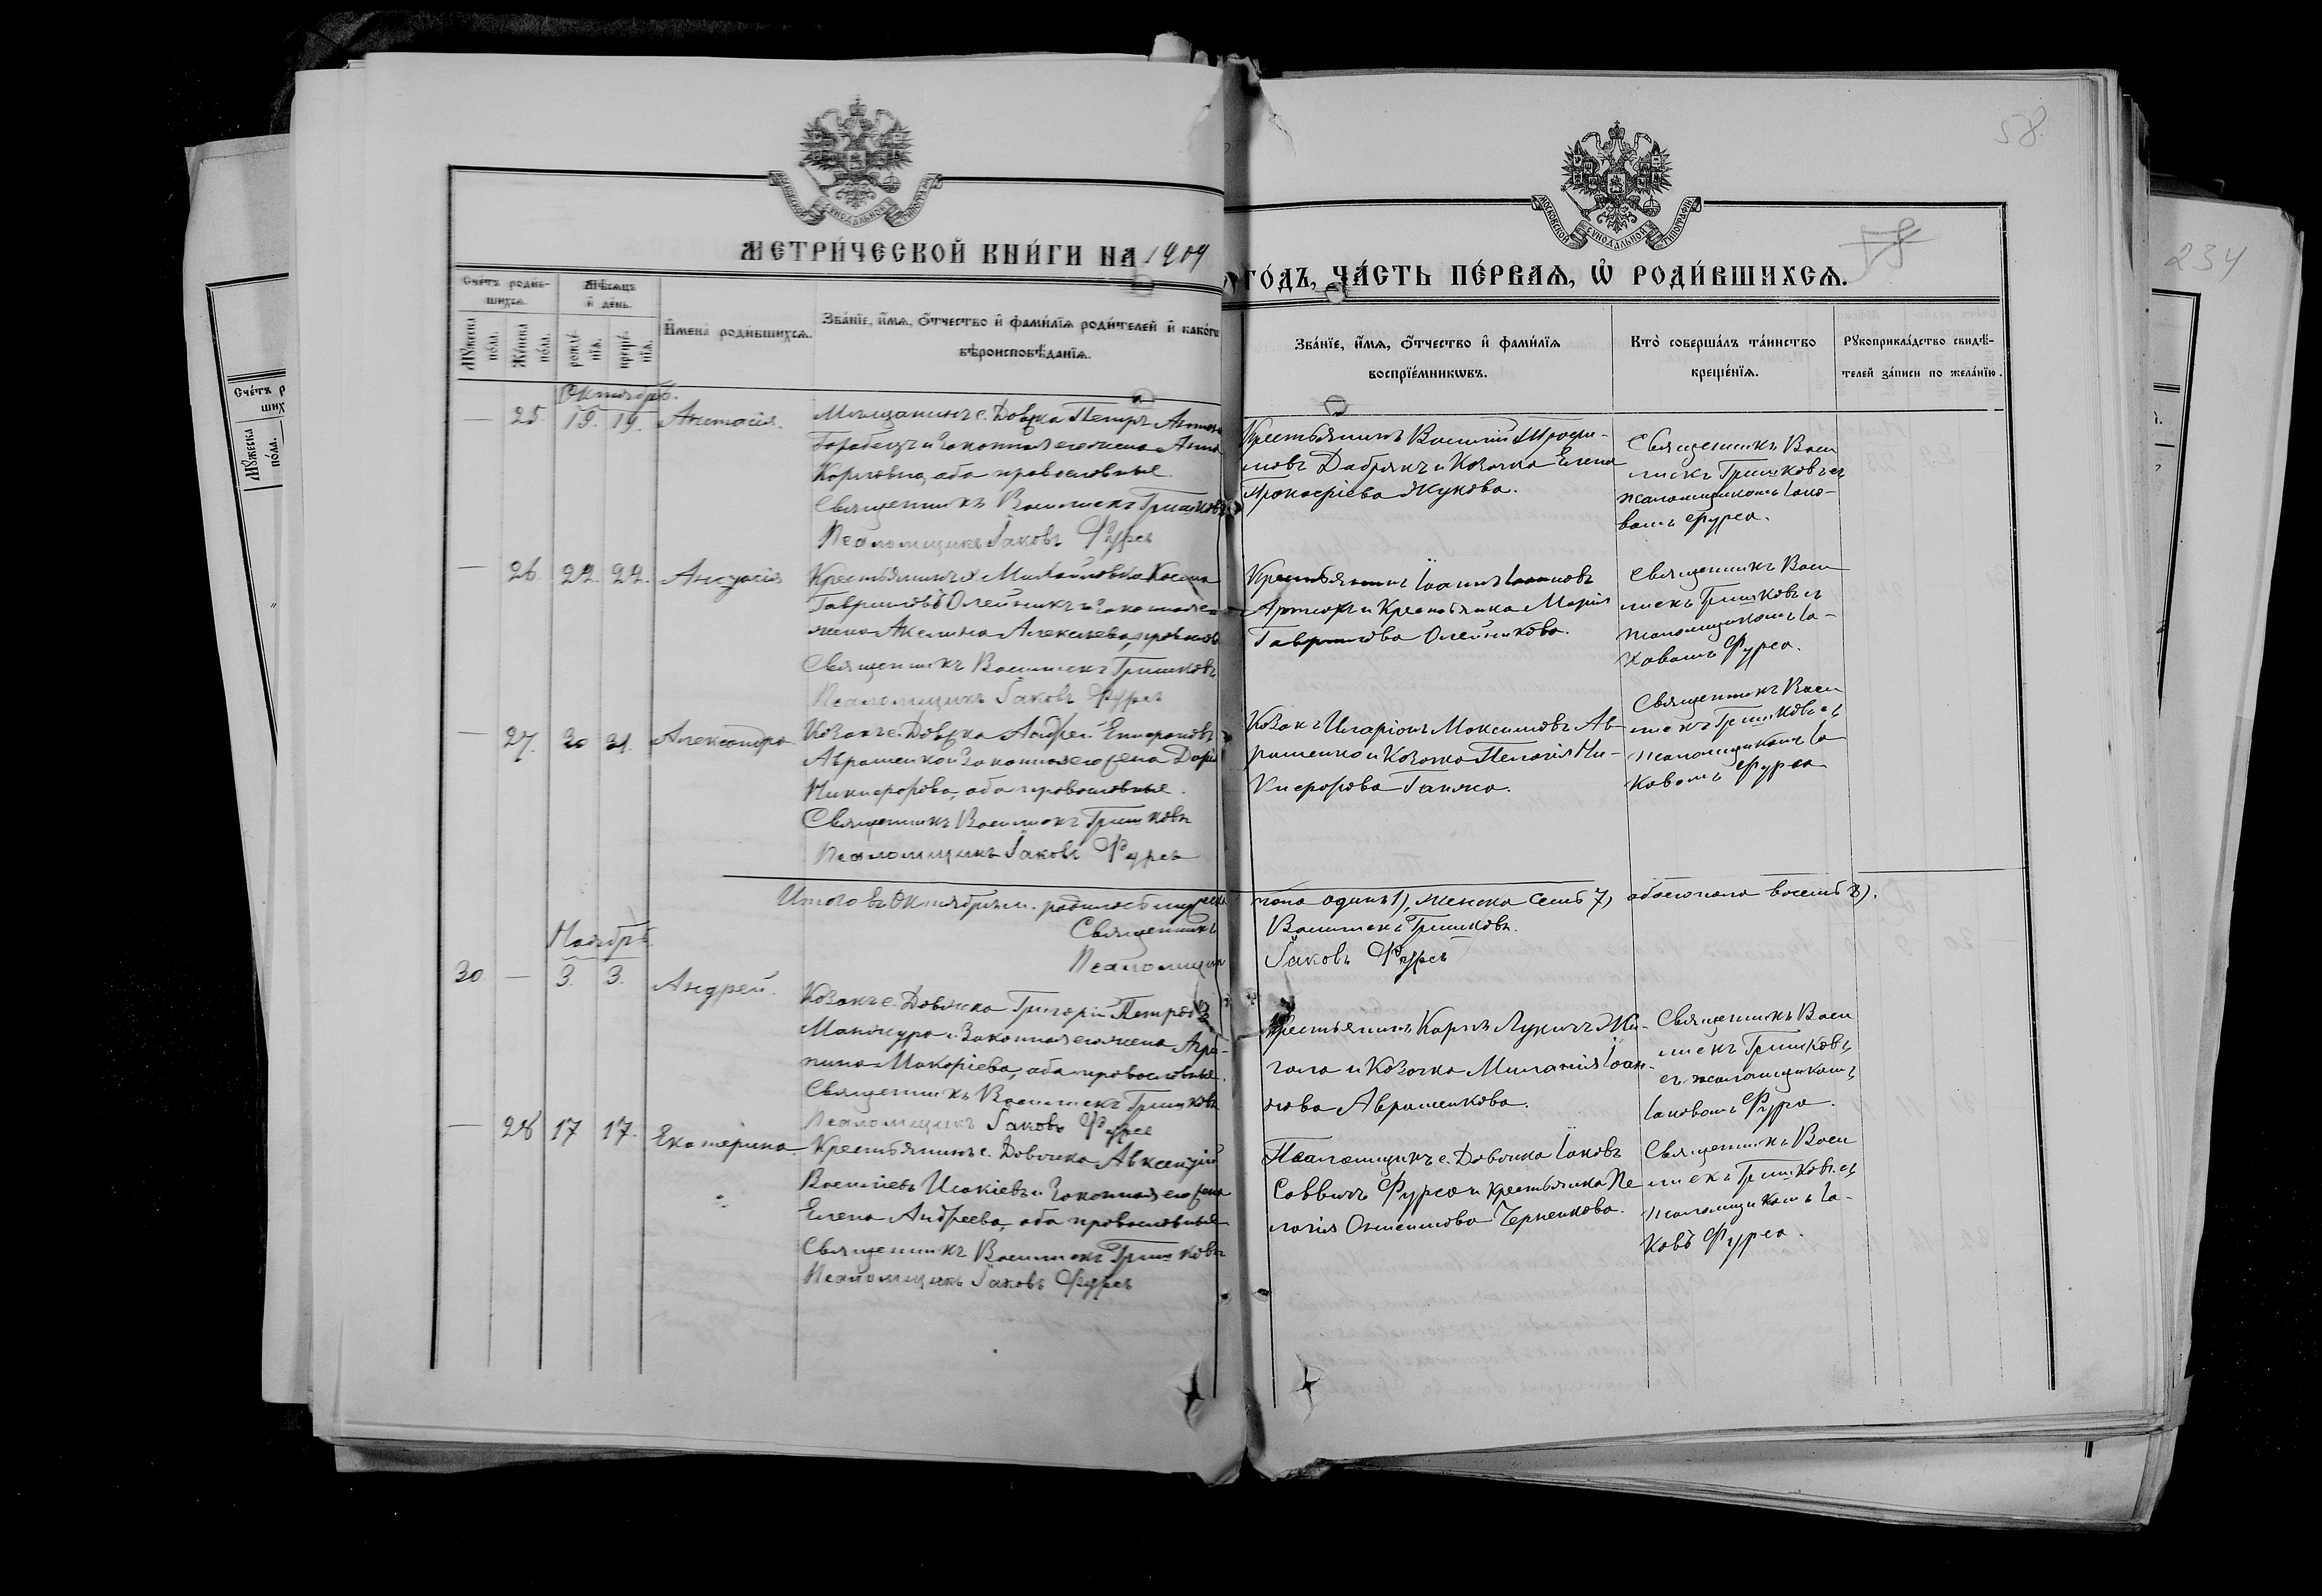 58.
МЕТРИ́ЧЕСКОЙ КНИ́ГИ НА 1909
ГО́ДЪ, ЧА́СТЬ ПЕ́РВАѦ, Ѡ҆ РОДИ́ВШИХСѦ.
234
МОСКОВСКОЙ СѴНОДАЛЬНОЙ ТИПОГРАФІИ
Сче́тъ роди́в-
шихсѧ.
Мѣ́сѧцъ
и҆ де́нь.
Мꙋ́жеска по́ла.
Же́нска по́ла.
рожде́нїѧ.
креще́нїѧ.
И҆мена̀ роди́вшихсѧ.
Зва́нїе, и҆́мѧ, ѻ҆́тчество и҆ фами́лїѧ роди́телей и҆ како́гѡ
вѣроисповѣ́данїѧ.
Зва́нїе, и҆́мѧ, ѻ҆́тчество и҆ фами́лїѧ
воспрїе́мникѡвъ.
Кто̀ соверша́лъ та́инство
креще́нїѧ.
Рꙋкоприкла́дство свидѣ́-
телей за́писи по жела́нїю.
Октябрь.
— 25. 19. 19.
Мѣщанинъ с. Довжка Петръ
законная его жена Анна
Карповна, оба православные
Священникъ Василискъ Гришковъ
Псаломщикъ Іаковъ Фурса
Крестьянинъ Василій
и Козачка Елена
Прокофіева Жукова.
Священникъ Васи
лискъ Гришковъ съ
псаломщикомъ Іако-
вомъ Фурса.
— 26. 22. 22.
Крестьянинъ х. Михайловка Косма
Гавриловъ Олейникъ и законная его
жена Акелина Алексеева, правосл
Священникъ Василискъ Гришковъ
Псаломщикъ Іаковъ Фурса
Крестьянинъ Іоаннъ Іоанновъ
и Крестьянка Марія
Гаврилова Олейникова.
Священникъ Васи
лискъ Гришковъ съ
псаломщикомъ Іа-
ковомъ Фурса.
— 27. 30 31. Александра
Козакъ с. Довжка Андрей
Аврашенко и Законная его жена Дарія
Никифорова, оба православные.
Священникъ Василискъ Гришковъ
Псаломщикъ Іаковъ Фурса
Козакъ Иларіонъ Максимовъ Ав-
рашенко и Козачка Пелагія Ни-
кифорова
Священникъ Васи
лискъ Гришковъ съ
псаломщикомъ Іа
ковомъ Фурса
Итого въ Октябрѣ м. родилось мужеска пола одинъ 1), женска семь 7, обоего пола восемь 8).
Священникъ Василискъ Гришковъ.
Псаломщикъ Іаковъ Фурса
Ноябрь
30 — 3. 3. Андрей.
Козакъ с. Довжка Григорій Петровъ
Манжура и Законная его жена Агри-
пина Макаріева, оба православные.
Священникъ Василискъ Гришковъ
Псаломщикъ Іаковъ Фурса
Крестьянинъ Карпъ Лукичъ Жи-
гала и Козачка Миланія Іоан-
нова Аврашенкова.
Священникъ Васи
лискъ Гришковъ
съ псаломщикомъ
Іаковомъ Фурса.
— 28 17 17. Екатерина
Крестьянинъ с. Довжка Авксентій
Василіевъ Исакіевъ и Законная его жена
Елена Андреева, оба православные
Священникъ Василискъ Гришковъ
Псаломщикъ Іаковъ Фурса
Псаломщикъ с. Довжка Іаковъ
Саввичъ Фурса и крестьянка Пе
лагія Черненкова.
Священникъ Васи
лискъ Гришковъ съ
псаломщикомъ Іа-
ковъ Фурса.